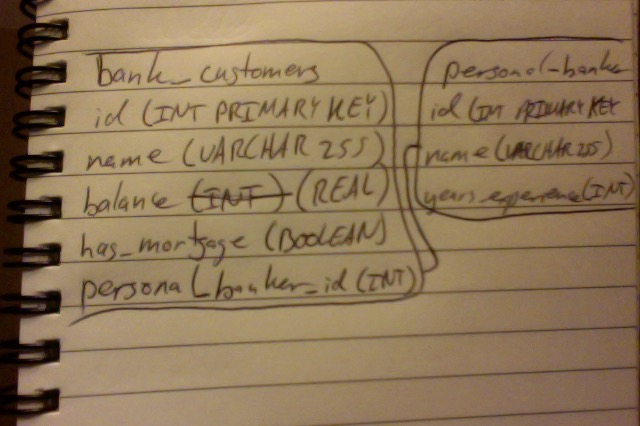 bank_customers
id (INT PRIMARY KEY)
name (VARCHAR 255)
balance (INT) (REAL)
has_mortgage (BOOLEAN)
personal_banker_id (INT)
personal_banker
id (INT PRIMARY KEY
name (VARCHAR 255)
years_experience (INT)